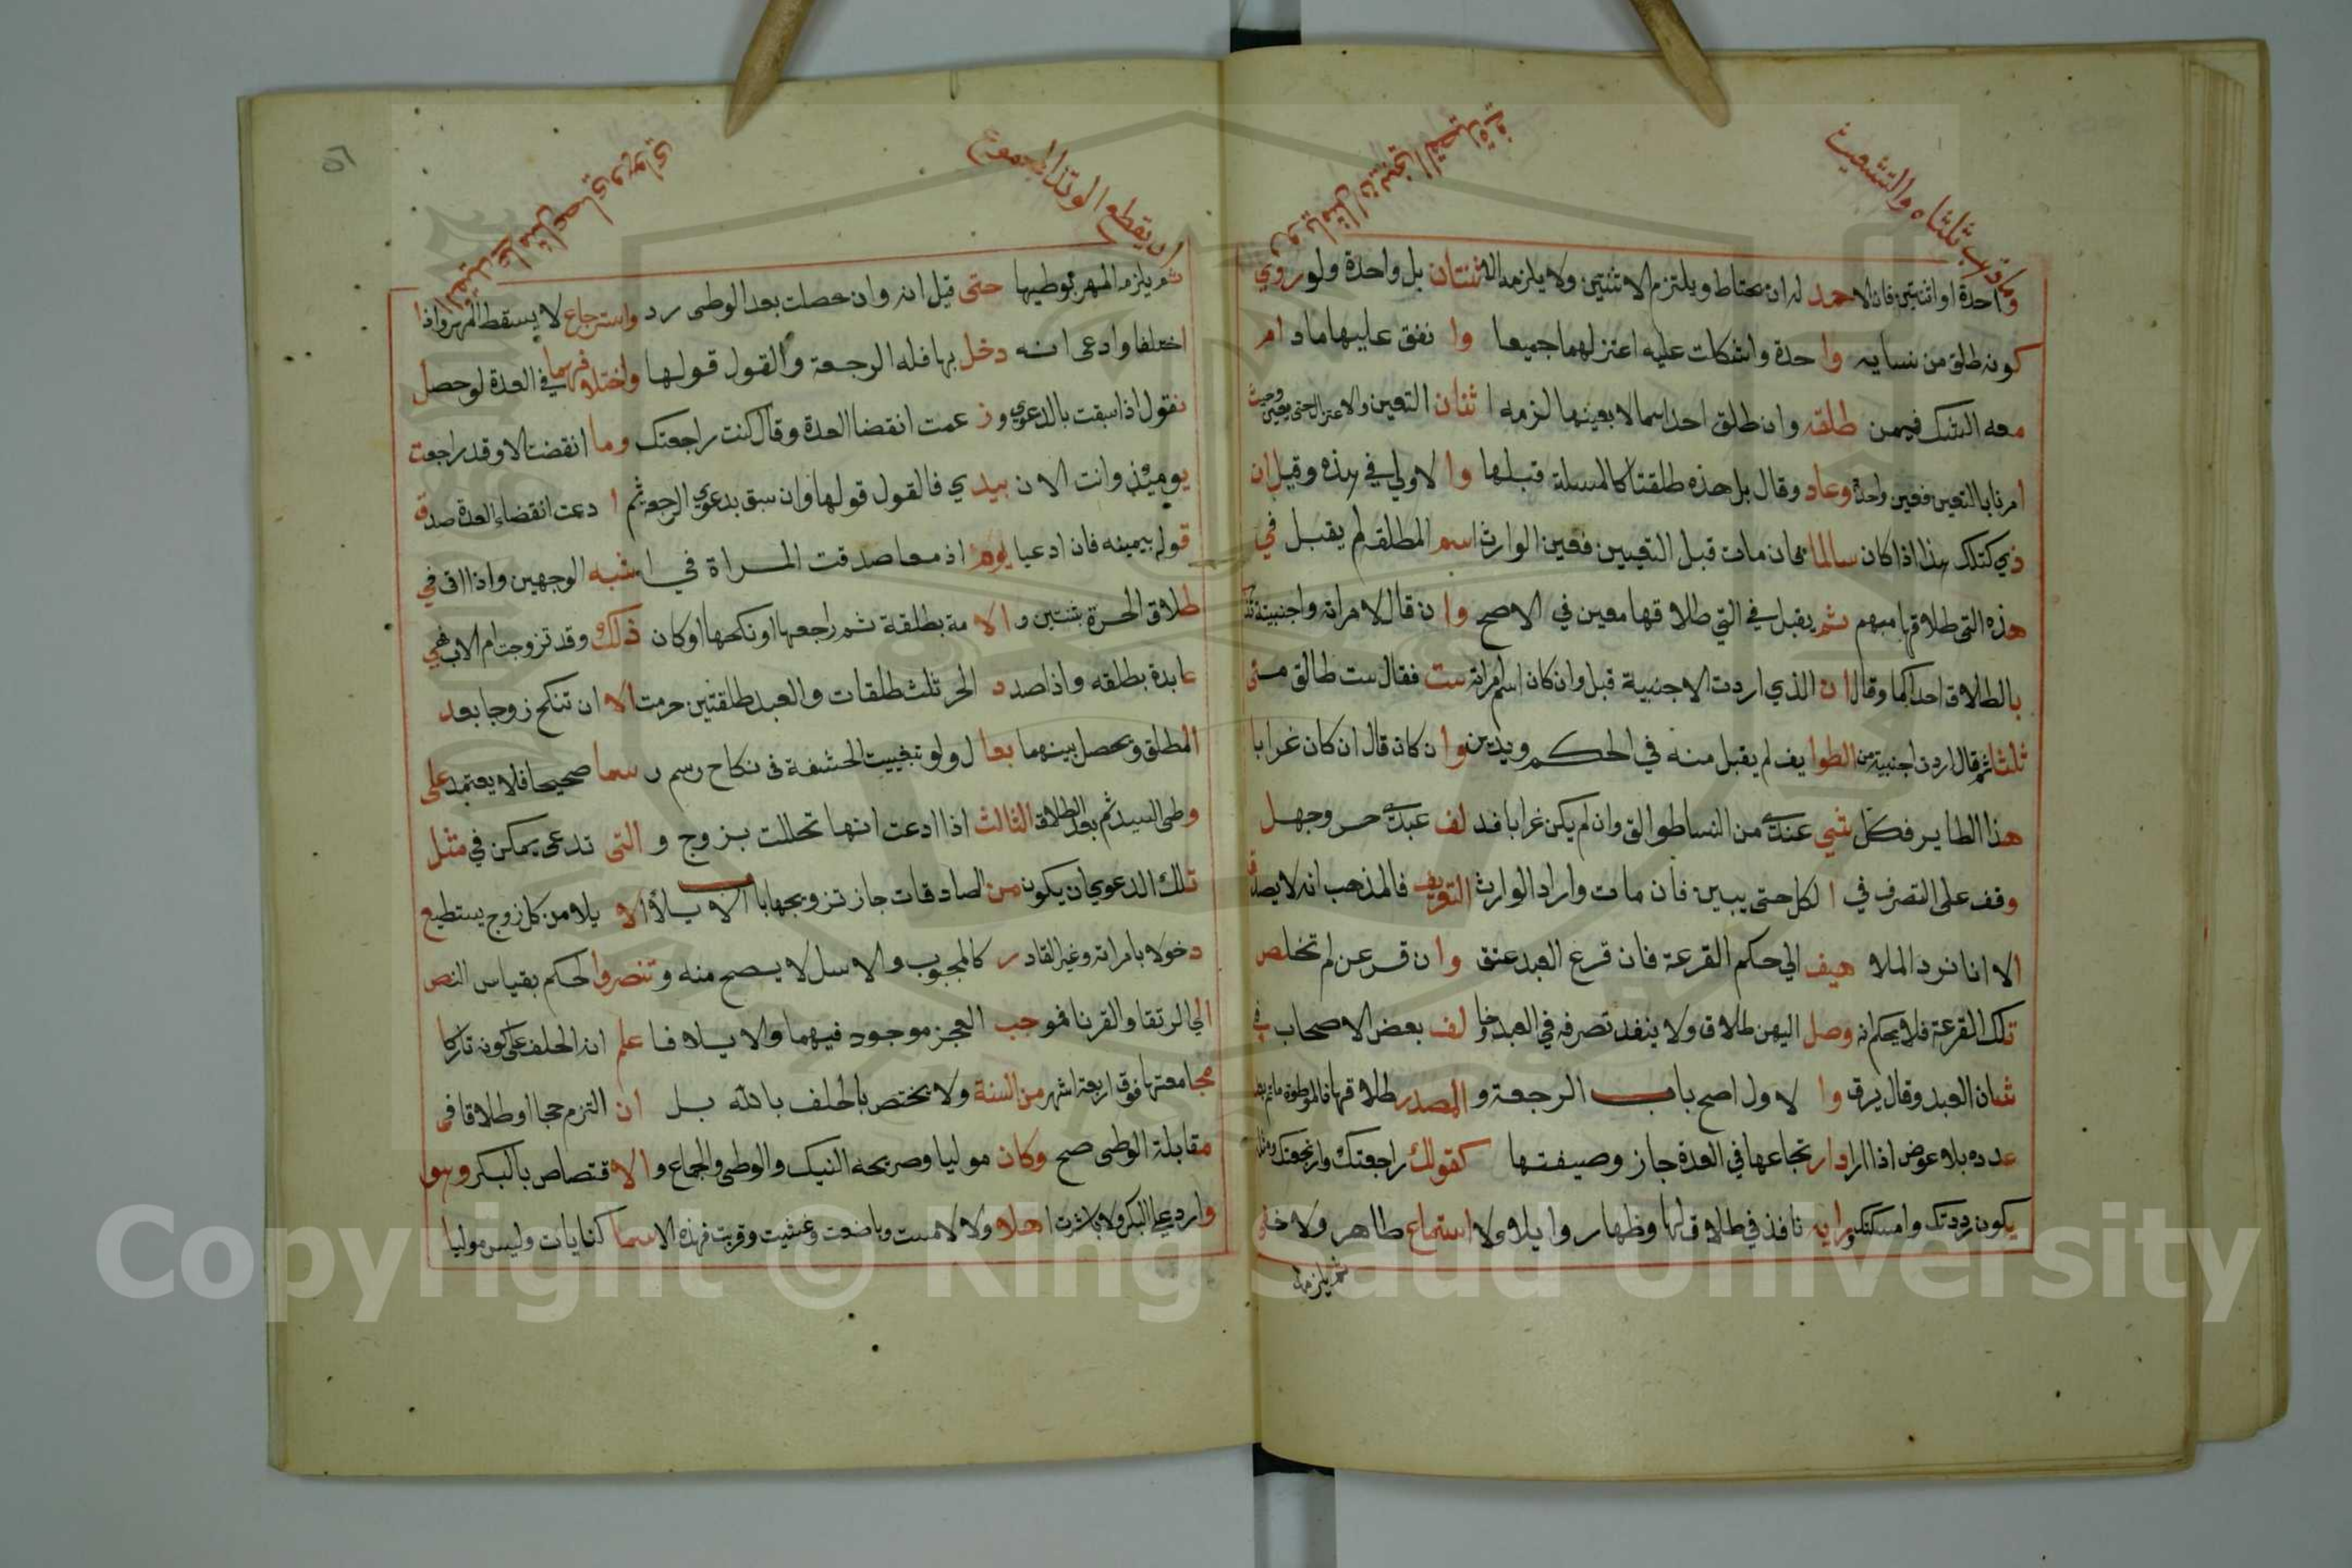 وما قرب ثلثاه والتشعيث
واحدة او اثنتين فان الاحمد له ان يحتاط ويلتزم الاثنتين ولا يلزمه الا ثنتان بل واحدة ولو روي
كونه طلق من نسايه وا حدة واشكلت عليه اعتزلهما جميعا وا نفق عليهما ما دام
معه الشك فيمن طلقه وان طلق احداهما لا بعينها لزمه ا ثنان التعين والاعتزال حتى يعين وحيث
امرنا بالتعين فعين واحدة وعاد وقال بل هذه طلقتا كالمسلة قبلها وا لاولي في هذه وقيل ان
ذي كتلك هذا اذا كان سالما فان مات قبل التعيين فعين الوارث اسم المطلقه لم يقبل في
هذه التى طلاقها مبهم ثم يقبل في التي طلاقها معين في الاصح وا ن قال لامراته واجنبية
بالطلاق احداكما وقال ان الذي اردت الاجنبية قبل وان كان اسم امراته ست فقال ست طالق متى
ثلثا ثم قال اردت اجنبية من الطوايف لم يقبل منه في الحكم ويدين وا ن كان قال ان كان غرابا
هذا الطاير فكل شي عندي من النساطوالق وان لم يكن غرابا فد لف عبدي حر وجهل
وقف على التصرف في ا لكل حتى يبين فان مات واراد الوارث التعريف فالمذهب انه لا يصدق
الا انا نرد الملا هيف الي حكم القرعة فان قرع العبد عتق وا ن قرعن لم تخلص
تلك القرعة فلا يحكم انه وصل اليهن طلاق ولا ينفد تصرفه في العبد وخا لف بعض الاصحاب في
شان العبد وقال يرق وا لاول اصح باب الرجعة و المصدر طلاقها فالموطوة ما لم يعد
عدده بلا عوض اذا اراد ارتجاعها في العدة جاز وصيفتها كقولك راجعتك وارتجعتك ومثله
يكون رددتك وامسكتك ورايه نافذ في طلاق لها وظهار وايلاء ولا استماع ظاهر ولا خفى
ثم يلزمه
ان يقطع الوتد المجموع
ثم يلزمه المهر بوطيها حتى قيل انه وان حصلت بعد الوطى رد واسترجاع لا يسقط المهر واذا
اختلفا وادعى انه دخل بها فله الرجعة والقول قولها واختلافهما في العدة لو حصل
نقول اذا سبقت بالدعوي وز عمت انقضا العدة وقال كنت راجعتك وما انقضت الا وقد راجعت
يومئذ وانت الان بيدي فالقول قولها وان سبق بدعوي الرجعة ثم ا دعت انقضاء العدة صدق
قوله بيمينه فان ادعيا يوم اذ معا صدقت المراة في اشبه الوجهين واذا اتى في
طلاق الحرة بثنتين و الا مة بطلقة ثم راجعها او نكحها او كان ذلك وقد تزوجت ام الاب فهي
عايدة بطلقه واذا صدد الحر ثلث طلقات والعبد طلقتين حرمت الا ان تنكح زوجا بعد
المطلق ويحصل بينهما بعا ل ولو بتغييب الحشفة في نكاح رسم ر سما صحيحا فلا يعتمد على
وطى السيد ثم بعد الطلاق الثالث اذا ادعت انها تحللت بزوج و التى تدعى يمكن في مثل
تلك الدعوي ان يكون من الصادقات جاز تزويجها باب الايلاء الا يلا من كل زوج يستطيع
دخولا بامراته وغير القادر كالمجبوب والاسل لا يصح منه وتنصر والحكم بقياس النص
الي الرتقا والقرنا فموجب العجز موجود فيهما والايلاء فا علم انه الحلف على كونه تاركا
مجامعتها فوق اربعة اشهر من السنة ولا يختص بالحلف بالله بل ان التزم حجا او طلاقا في
مقابلة الوطى صح وكان موليا وصريحه النيك والوطى والجماع و الا قتصاص بالبكر وهو
وارد على البكر ولا باشرت اهلا ولا لامست وباضعت وغشيت وقربت فهذه الاسما كنايات وليس موليا